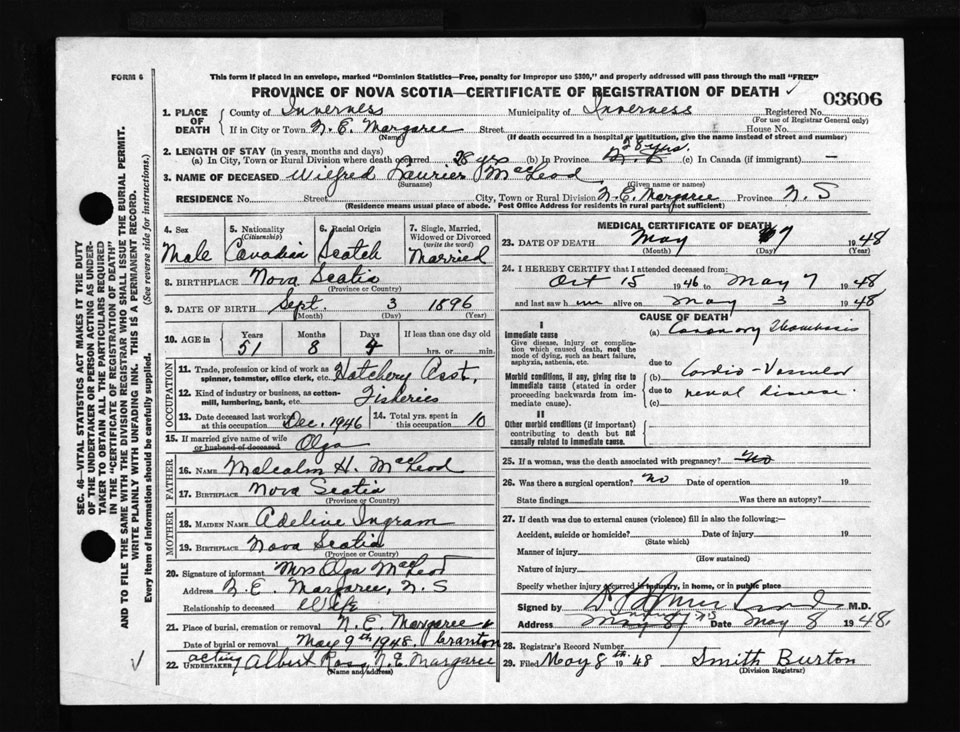 FORM 6
This form if placed in an envelope, marked "Dominion Statistics—Free, penalty for improper use $300," and properly addressed will pass through the mail "FREE"
PROVINCE OF NOVA SCOTIA—CERTIFICATE OF REGISTRATION OF DEATH ✓
03606
1. PLACE OF DEATH County of Inverness Municipality of Inverness Registered No.
(For use of Registrar General only)
If in City or Town N. E. Margaree Street House No.
(Name) (If death occurred in a hospital or institution, give the name instead of street and number)
2. LENGTH OF STAY (in years, months and days)
(a) In City, Town or Rural Division where death occurred 28 yrs (b) In Province 28 yrs. (c) In Canada (if immigrant) —
3. NAME OF DECEASED Wilfred Laurier MacLeod
(Surname) (Given name or names)
RESIDENCE No. Street City, Town or Rural Division N.E. Margaree Province N S
(Residence means usual place of abode. Post Office Address for residents in rural parts not sufficient)
4. Sex
Male
5. Nationality
(Citizenship)
Canadian
6. Racial Origin
Scotch
7. Single, Married, Widowed or Divorced
(write the word)
Married
8. BIRTHPLACE Nova Scotia
(Province or Country)
9. DATE OF BIRTH Sept. 3 1896
(Month) (Day) (Year)
10. AGE in Years Months Days If less than one day old
51 8 4 hrs. or min.
OCCUPATION
11. Trade, profession or kind of work as spinner, teamster, office clerk, etc. Hatchery Asst,
12. Kind of industry or business, as cotton-mill, lumbering, bank, etc. Fisheries
13. Date deceased last worked at this occupation Dec. 1946
14. Total yrs. spent in this occupation 10
15. If married give name of wife or husband of deceased Olga
FATHER
16. NAME Malcolm H. MacLeod
17. BIRTHPLACE Nova Scotia
(Province or Country)
MOTHER
18. MAIDEN NAME Adeline Ingram
19. BIRTHPLACE Nova Scotia
(Province or Country)
20. Signature of informant Mrs Olga MacLeod
Address N. E. Margaree, N. S
Relationship to deceased Wife
21. Place of burial, cremation or removal N. E. Margaree
Date of burial or removal May 9th 1948. Cranton
22. acting UNDERTAKER Albert Ross, N.E. Margaree
(Name and address)
MEDICAL CERTIFICATE OF DEATH
23. DATE OF DEATH May 7 1948
(Month) (Day) (Year)
24. I HEREBY CERTIFY that I attended deceased from:
Oct 15 1946 to May 7 1948
and last saw him alive on May 3 1948
CAUSE OF DEATH
I
Immediate cause
Give disease, injury or complication which caused death, not the mode of dying, such as heart failure, asphyxia, asthenia, etc.
(a) Coronary Thombosis
due to
Morbid conditions, if any, giving rise to immediate cause (stated in order proceeding backwards from immediate cause).
(b) Cardio-Vascular
due to renal disease
(c)
II
Other morbid conditions (if important) contributing to death but not causally related to immediate cause.
25. If a woman, was the death associated with pregnancy? No
26. Was there a surgical operation? No Date of operation 19
State findings Was there an autopsy?
27. If death was due to external causes (violence) fill in also the following:—
Accident, suicide or homicide? Date of injury 19
(State which)
Manner of injury
(How sustained)
Nature of injury
Specify whether injury occurred in industry, in home, or in public place
Signed by M.D.
Address Date May 8 1948.
28. Registrar's Record Number
29. Filed May 8th. 1948 Smith Burton
(Division Registrar)
SEC. 46—VITAL STATISTICS ACT MAKES IT THE DUTY
OF THE UNDERTAKER OR PERSON ACTING AS UNDERTAKER TO OBTAIN ALL THE PARTICULARS REQUIRED
IN THE "CERTIFICATE OF REGISTRATION OF DEATH"
AND TO FILE THE SAME WITH THE DIVISION REGISTRAR WHO SHALL ISSUE THE BURIAL PERMIT.
WRITE PLAINLY WITH UNFADING INK. THIS IS A PERMANENT RECORD.
Every item of information should be carefully supplied. (See reverse side for instructions.)
✓